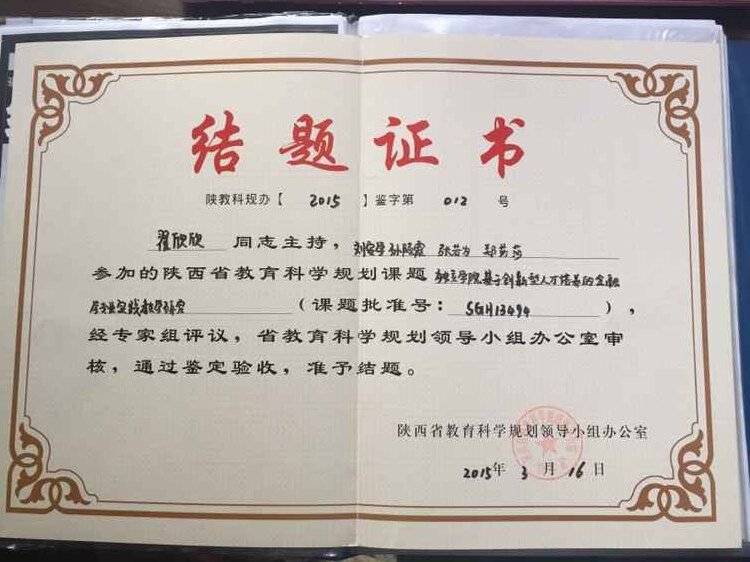 结题证书
陕教科规办【 2015 】鉴字第 012 号
翟欣欣 同志主持,
参加的陕西省教育科学规划课题 独立学院基于创新型人才培养的金融
专业实践教学研究 (课题批准号: SGH13494 ),
经专家组评议,省教育科学规划领导小组办公室审
核,通过鉴定验收,准予结题。
陕西省教育科学规划领导小组办公室
2015年 3 月 16 日